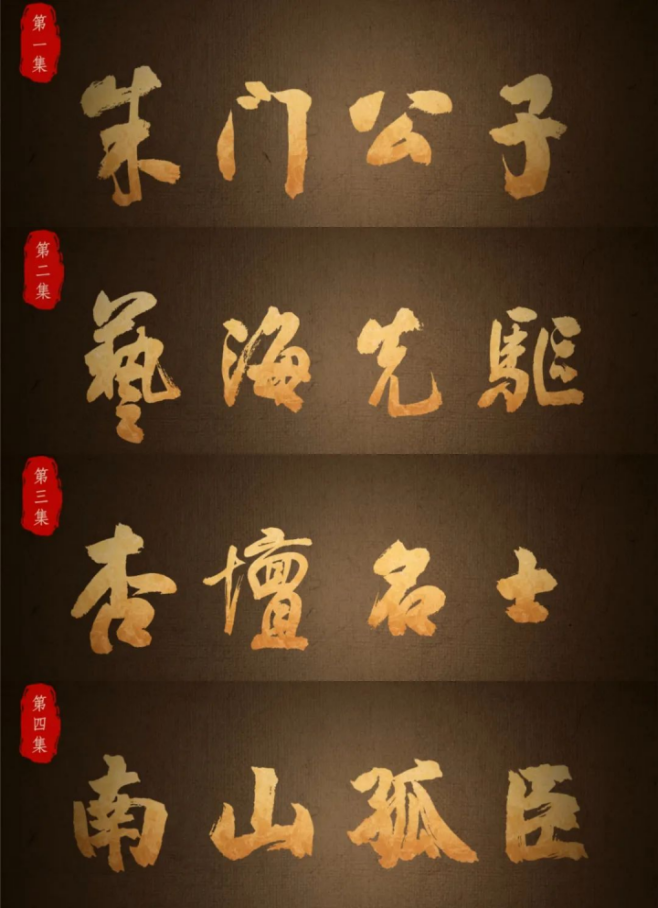 第一集
朱门公子
第二集
藝海先驅
第三集
杏壇名士
第四集
南山孤臣